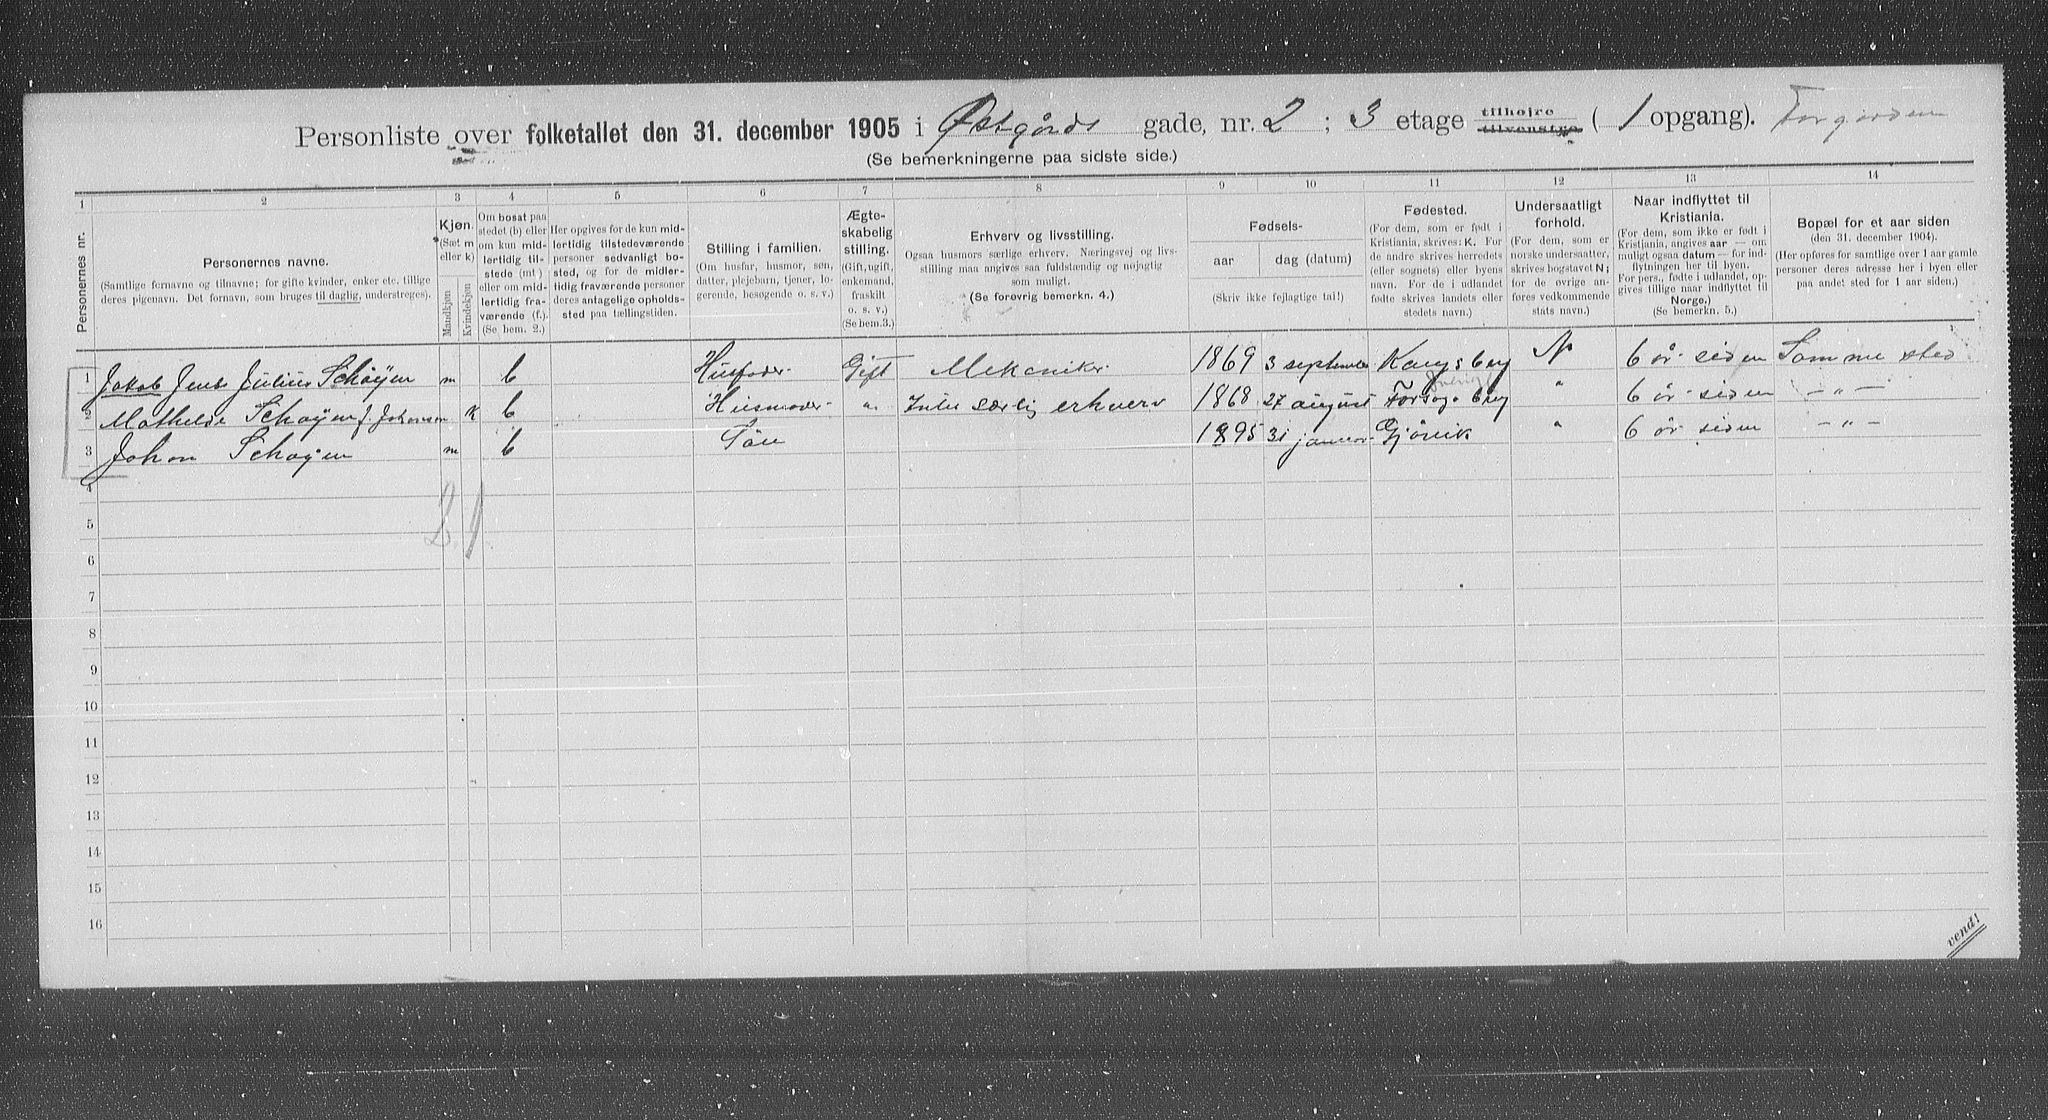 Personliste over folketallet den 31. december 1905 i Østgårds gade, nr. 2 ; 3 etage tilhøjre tilvenstre ( 1 opgang). Forgården
(Se bemerkningerne paa sidste side.)
1 2 3 4 5 6 7 8 9 10 11 12 13 14
Personernes nr.
Personernes navne.
(Samtlige fornavne og tilnavne; for gifte kvinder, enker etc. tillige
deres pigenavn. Det fornavn, som bruges til daglig, understreges).
Kjøn.
(Sæt m
eller k)
Mandkjøn
Kvindekjøn
Om bosat paa
stedet (b) eller
om kun mid-
lertidig til-
stede (mt)
eller om mid-
lertidig fra-
værende (f.).
(Se bem. 2.)
Her opgives for de kun mid-
lertidig tilstedeværende
personer sedvanligt bo-
sted, og for de midler-
tidig fraværende personer
deres antagelige opholds-
sted paa tællingstiden.
Stilling i familien.
(Om husfar, husmor, søn,
datter, plejebarn, tjener, lo-
gerende, besøgende o. s. v.)
Ægte-
skabelig
stilling.
(Gift, ugift,
enkemand,
fraskilt
o. s. v.)
(Se bem. 3.)
Erhverv og livsstilling.
Ogsaa husmors særlige erhverv. Næringsvej og livs-
stilling maa angives saa fuldstændig og nøjagtig
som muligt.
(Se forøvrig bemerkn. 4.)
Fødsels-
aar
dag (datum)
(Skriv ikke fejlagtige tal!)
Fødested.
(For dem, som er født i
Kristiania, skrives: K. For
de andre skrives herredets
(eller sognets) eller byens
navn. For de i udlandet
fødte skrives landets eller
stedets navn.)
Undersaatligt
forhold.
(For dem, som er
norske undersaatter,
skrives bogstavet N;
for de øvrige an-
føres vedkommende
stats navn.)
Naar indflyttet til
Kristiania.
(For dem, som ikke er født i
Kristiania, angives aar — om
muligt ogsaa datum — for ind-
flytningen her til byen.
For pers., fødte i udlandet, op-
gives tillige naar indflyttet til
Norge.)
(Se bemerkn. 5.)
Bopæl for et aar siden
(den 31. december 1904).
(Her opføres for samtlige over 1 aar gamle
personer deres adresse her i byen eller
paa andet sted for 1 aar siden.)
1 Jakob Jens Julius Schøyen m b Husfader Gift Mekaniker 1869 3 september Kongsberg N 6 år siden Samme sted
2 Mathilde Schøyen f. Johansen K b Husmoder " Intet særlig erhverv 1868 27 august " 6 år siden — " —
3 Johan Schøyen m b Søn 1895 31 januar Gjøvik " 6 år siden — " —
4
2. 1.
5
6
7
8
9
10
11
12
13
14
15
16
vend!